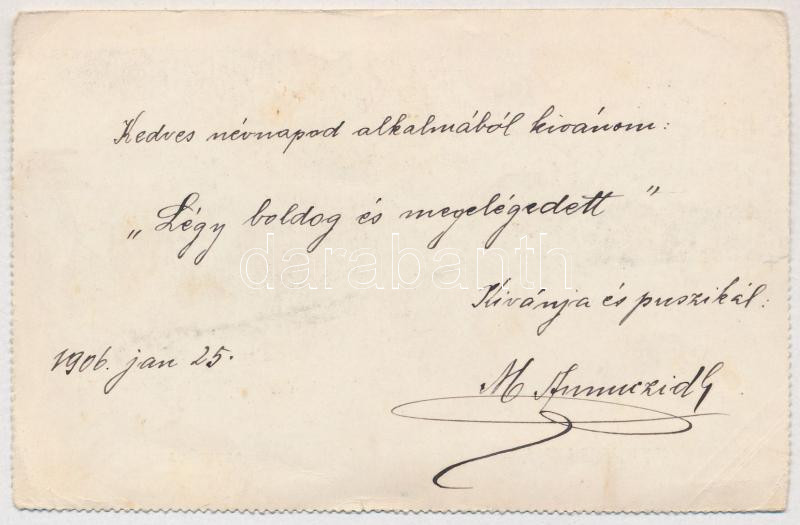 Kedves névnapod alkalmából kivánom:
„Légy boldog és megelégedett"
darabanth
Kivánja és puszikál:
1906. jan 25.
M